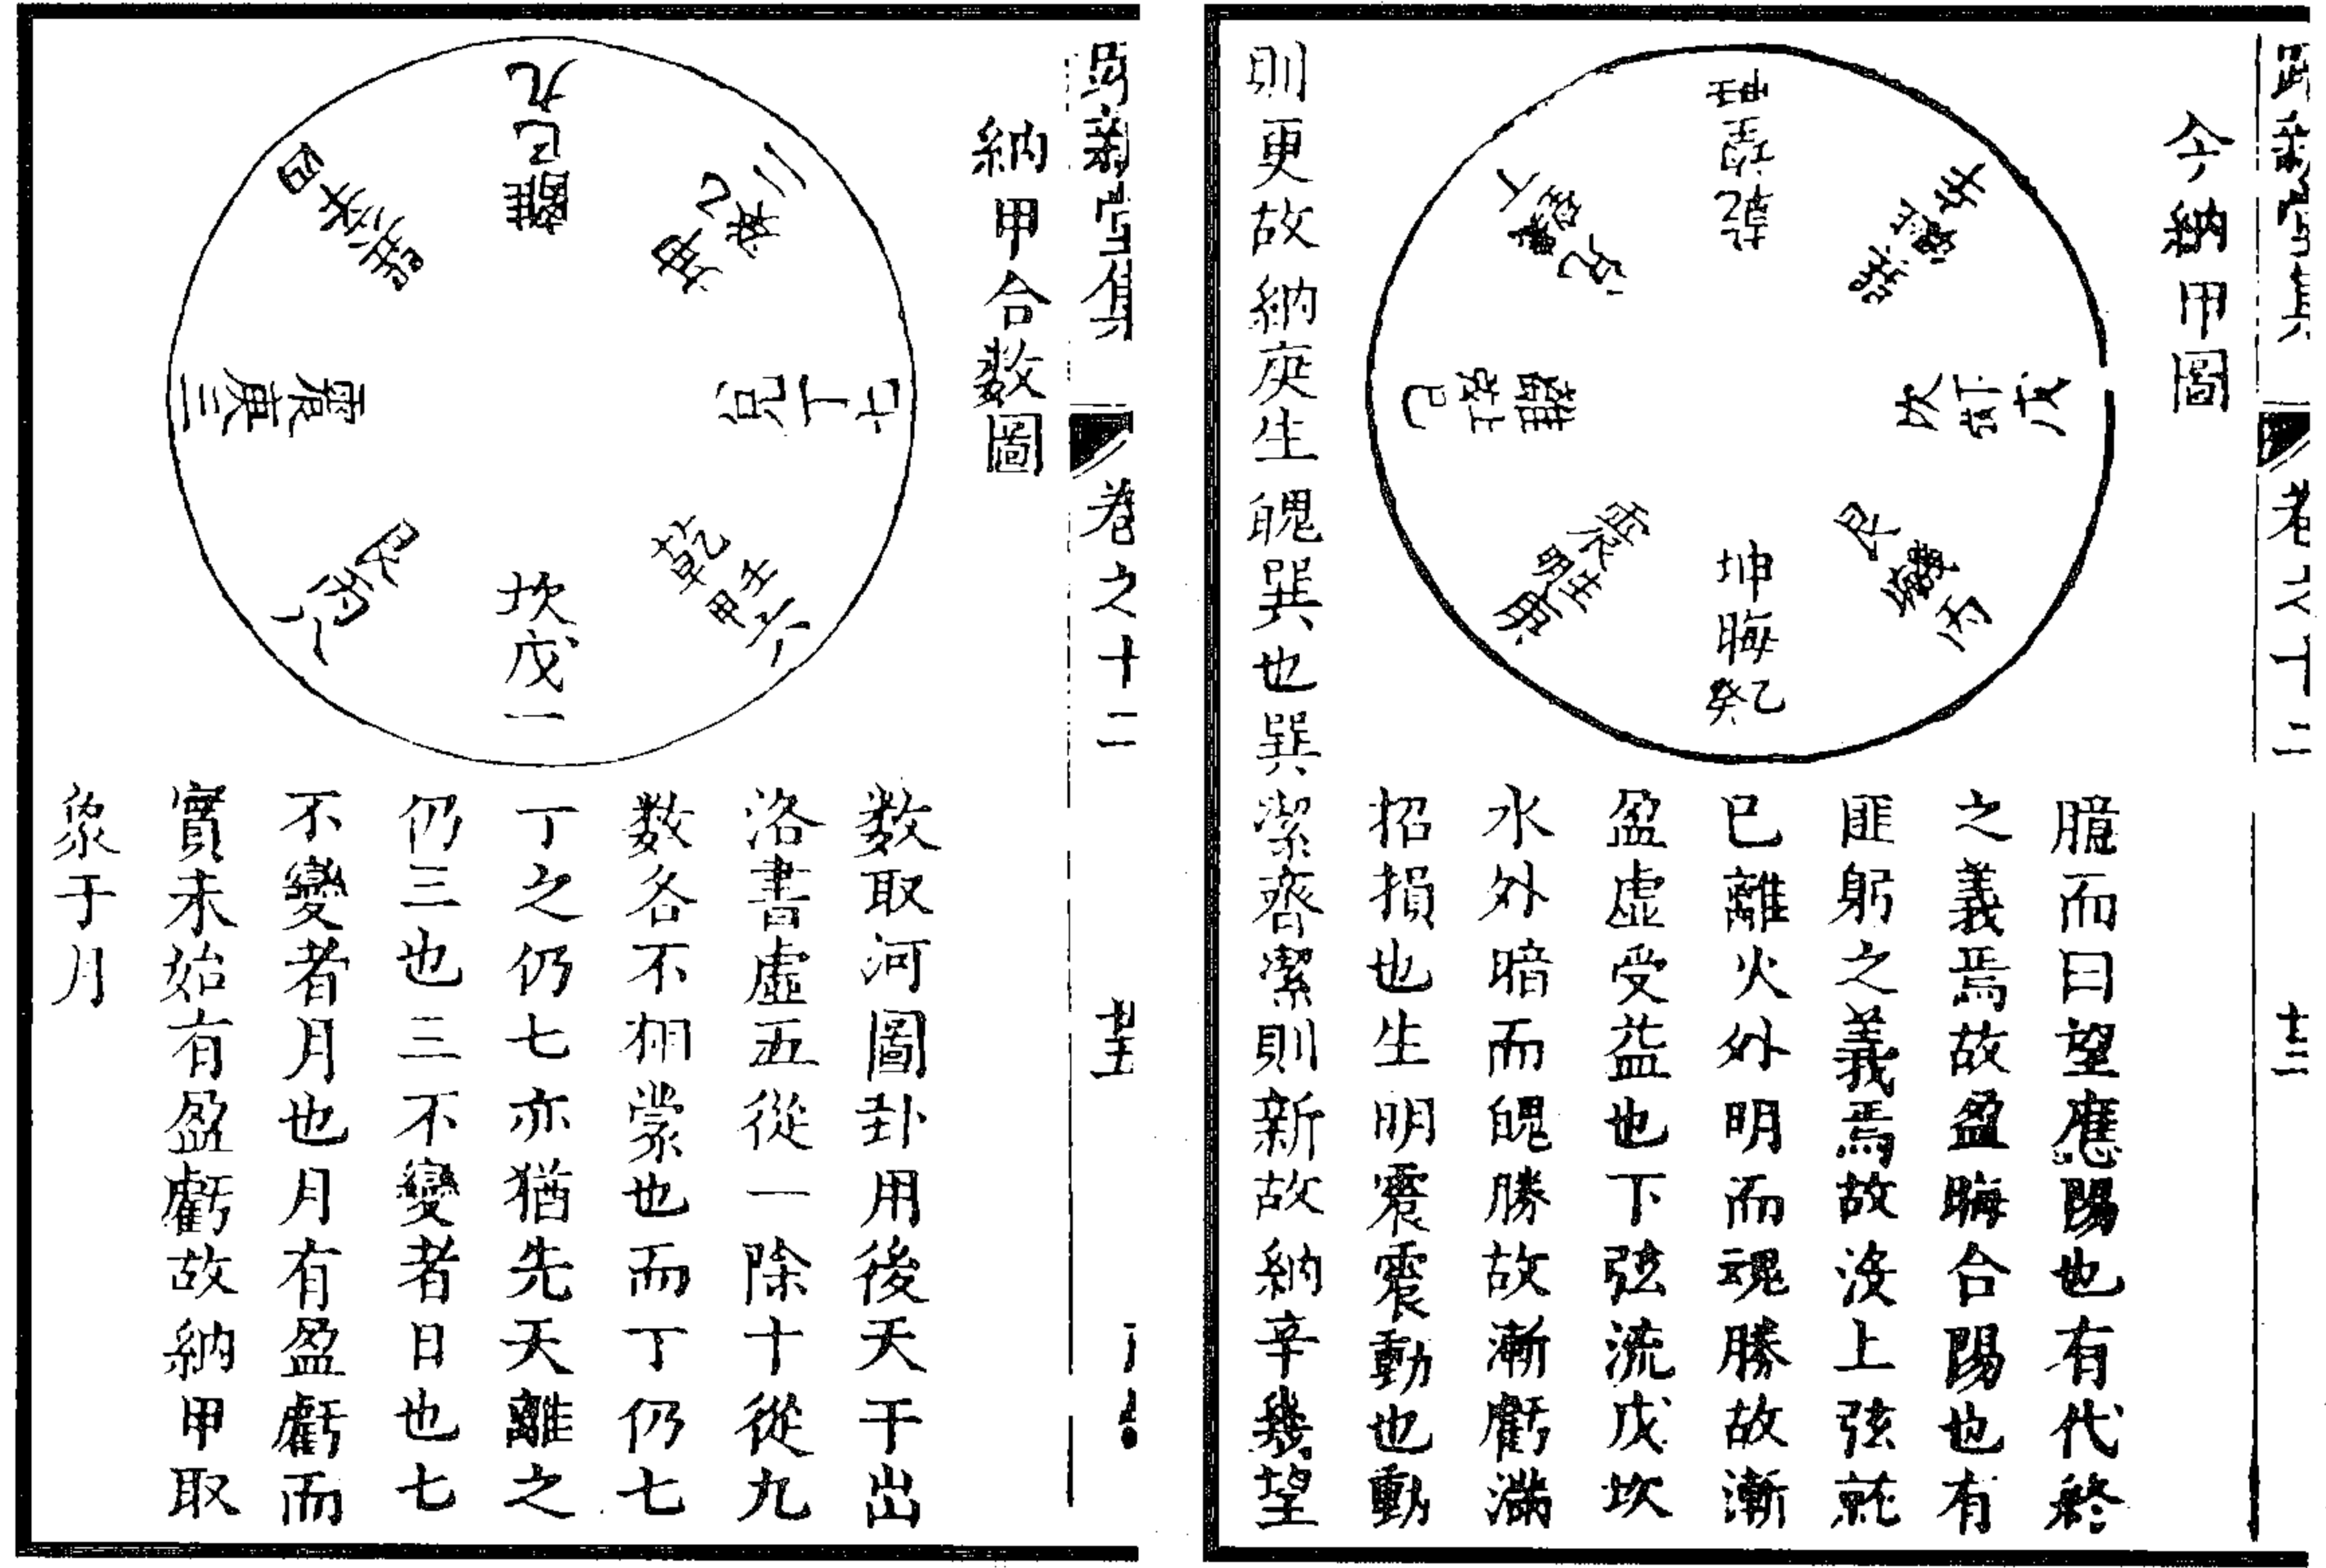 今納甲圖
乾
望
坎
下弦
戊
艮
丙
坤晦
乙癸
震
生明
庚
離
上弦
己
兌
丁
辛
臆而曰望應陽也有代終
之義焉故盈晦合陽也有
匪躬之義焉故沒上弦就
已離火外明而魂勝故漸
盈虛受益也下弦流戊坎
水外暗而魄勝故漸虧滿
招損也生明震震動也動
則更故納庚生魄巽也巽潔齊潔則新故納辛幾望
卷之十二
納甲合数圖
九己離
二
乙癸
坤
七丁兌
乾
甲壬
六
坎戊一
艮丙八
震庚三
四辛巽
数取河圖卦用後天干出
洛書虛五從一除十從九
数各不相蒙也而丁仍七
丁之仍七亦猶先天離之
仍三也三不變者日也七
不變者月也月有盈虧而
實未始有盈虧故納甲取
象于月
卷之十二